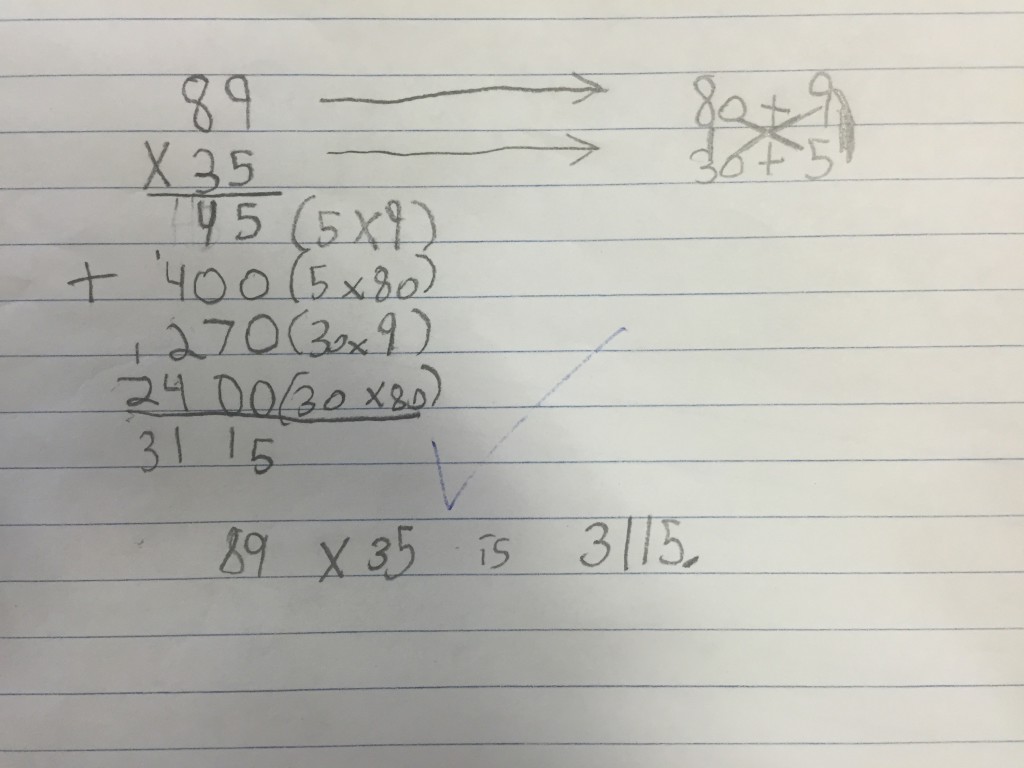 89 80 + 9
X 35 30 + 5
45 (5 X 9)
+ 1400 (5 x 80)
1270 (30 x 9)
2400 (30 x 80)
3115
89 X 35 is 3115.